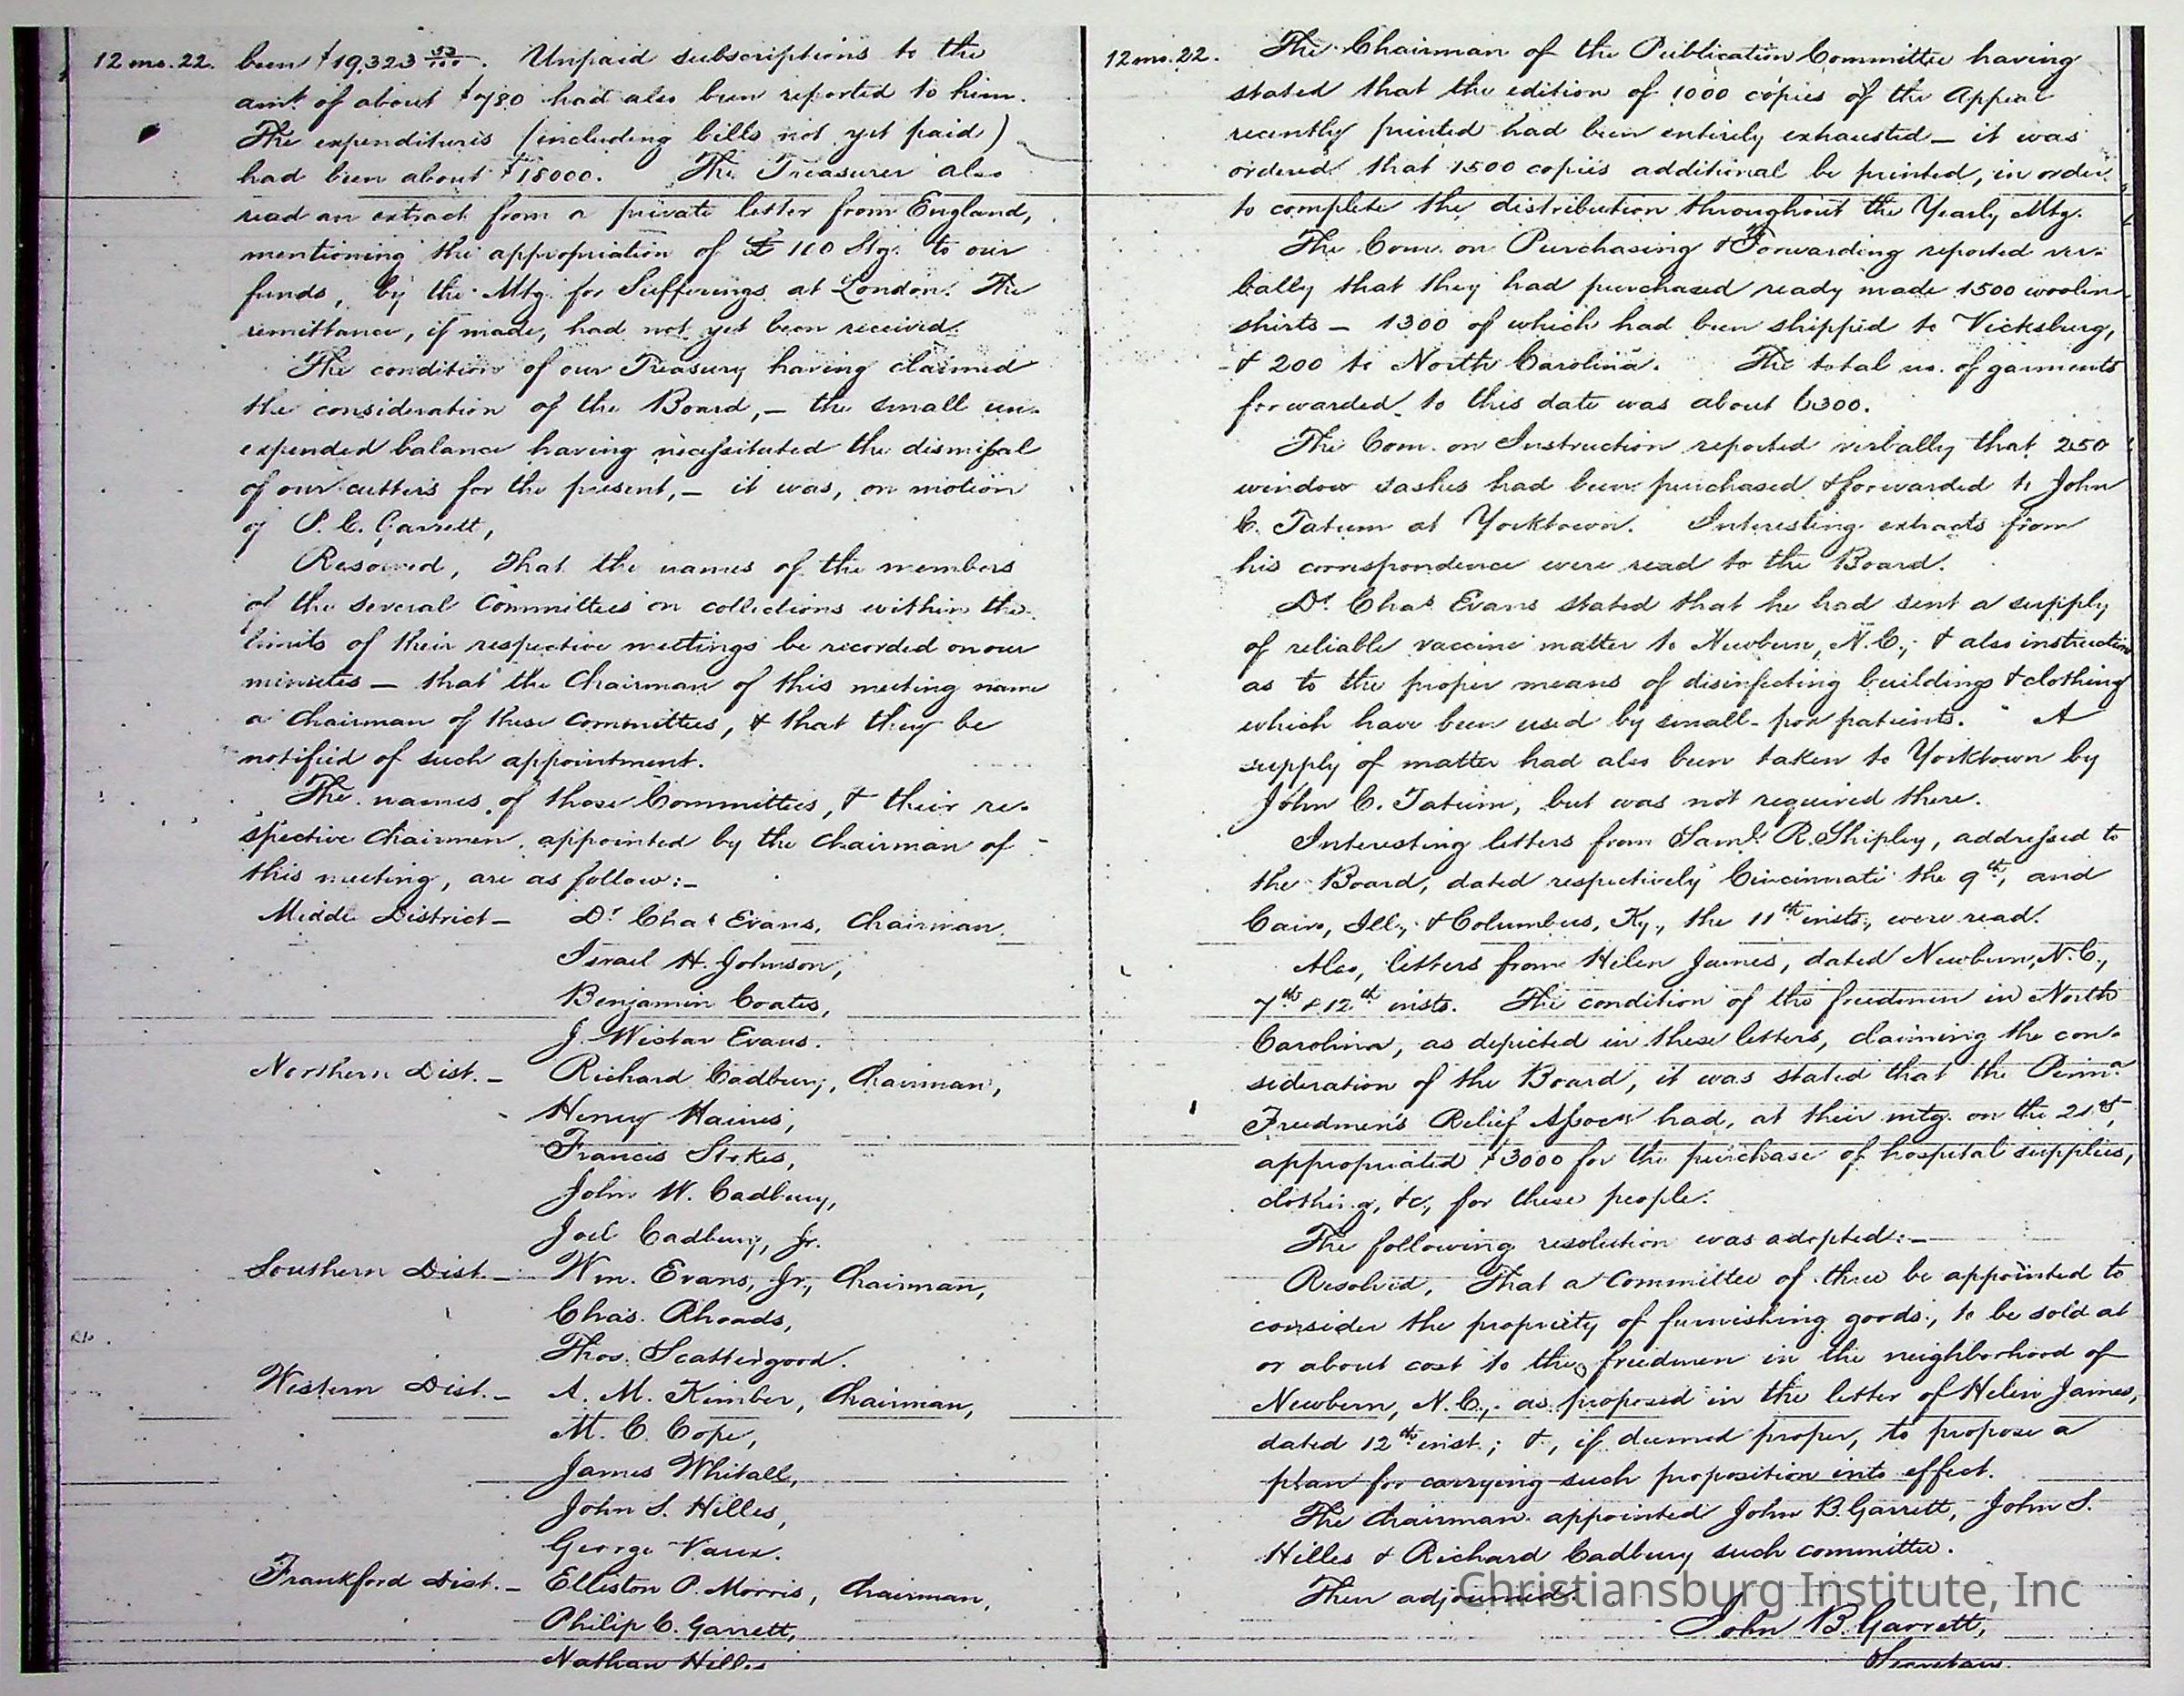 12 mo. 22. been $19,323 53/100. Unpaid subscriptions to the
amt. of about $780 had also been reported to him.
The expenditures (including bills not yet paid)
had been about $18000. The Treasurer also
read an extract from a private letter from England,
mentioning the appropriation of £ 100 Stg. to our
funds, by the Mtg. for Sufferings at London. The
remittance, if made, had not yet been received.
The condition of our Treasury having claimed
the consideration of the Board, – the small un-
expended balance having necessitated the dismissal
of our cutters for the present, – it was, on motion
of P. C. Garrett,
Resolved, That the names of the members
of the several Committees on collections within the
limits of their respective meetings be recorded on our
minutes – that the Chairman of this meeting name
a Chairman of these Committees, & that they be
notified of such appointment.
The names of those Committees, & their re-
spective Chairmen, appointed by the Chairman of
this meeting, are as follow:–
Middle District – Dr. Chas Evans, Chairman,
Israel H. Johnson,
Benjamin Coates,
J. Wistar Evans.
Northern Dist. – Richard Cadbury, Chairman,
Henry Haines,
Francis Stokes,
John W. Cadbury,
Joel Cadbury, Jr.
Southern Dist. – Wm. Evans, Jr., Chairman,
Chas. Rhoads,
Thos. Scattergood.
Western Dist. – A. M. Kimber, Chairman,
M. C. Cope,
James Whitall,
John S. Hilles,
George Vaux.
Frankford Dist. – Elliston P. Morris, Chairman,
Philip C. Garrett,
Nathan Hilles
12 mo. 22. The Chairman of the Publication Committee having
stated that the edition of 1000 copies of the Appeal
recently printed had been entirely exhausted – it was
ordered that 1500 copies additional be printed, in order
to complete the distribution throughout the Yearly Mtg.
The Com. on Purchasing & Forwarding reported ver-
bally that they had purchased ready made 1500 woolen
shirts – 1300 of which had been shipped to Vicksburg,
& 200 to North Carolina. The total no. of garments
forwarded to this date was about 6300.
The Com. on Instruction reported verbally that 250
window sashes had been purchased & forwarded to John
C. Tatum at Yorktown. Interesting extracts from
his correspondence were read to the Board.
Dr. Chas. Evans stated that he had sent a supply
of reliable vaccine matter to Newbern, N.C.; & also instruction
as to the proper means of disinfecting buildings & clothing
which have been used by small-pox patients. A
supply of matter had also been taken to Yorktown by
John C. Tatum, but was not required there.
Interesting letters from Saml. R. Shipley, addressed to
the Board, dated respectively Cincinnati the 9th, and
Cairo, Ill., & Columbus, Ky., the 11th insts., were read.
Also, letters from Helen James, dated Newbern, N.C.,
7th & 12th insts. The condition of the freedmen in North
Carolina, as depicted in these letters, claiming the con-
sideration of the Board, it was stated that the Penna.
Freedmen's Relief Assocn had, at their mtg. on the 21st,
appropriated $3000 for the purchase of hospital supplies,
clothing, &c., for these people.
The following resolution was adopted:–
Resolved, That a Committee of three be appointed to
consider the propriety of furnishing goods, to be sold at
or about cost to the freedmen in the neighborhood of
Newbern, N.C., as proposed in the letter of Helen James,
dated 12th inst.; &, if deemed proper, to propose a
plan for carrying such proposition into effect.
The Chairman appointed John B. Garrett, John S.
Hilles & Richard Cadbury such committee.
Then adjourned.
Christiansburg Institute, Inc
John B. Garrett,
Secretary.